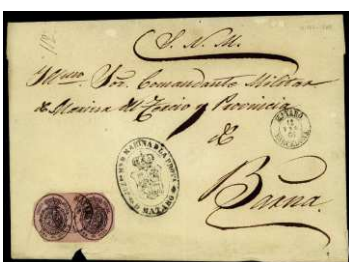 S. N. M.
Ylmo. Sor. Comandante Militar
de Marina del Tercio y Provincia
de
Barna.
MATARO
BARCELONA
MARINA DE LA PROVA
D MATARÓ